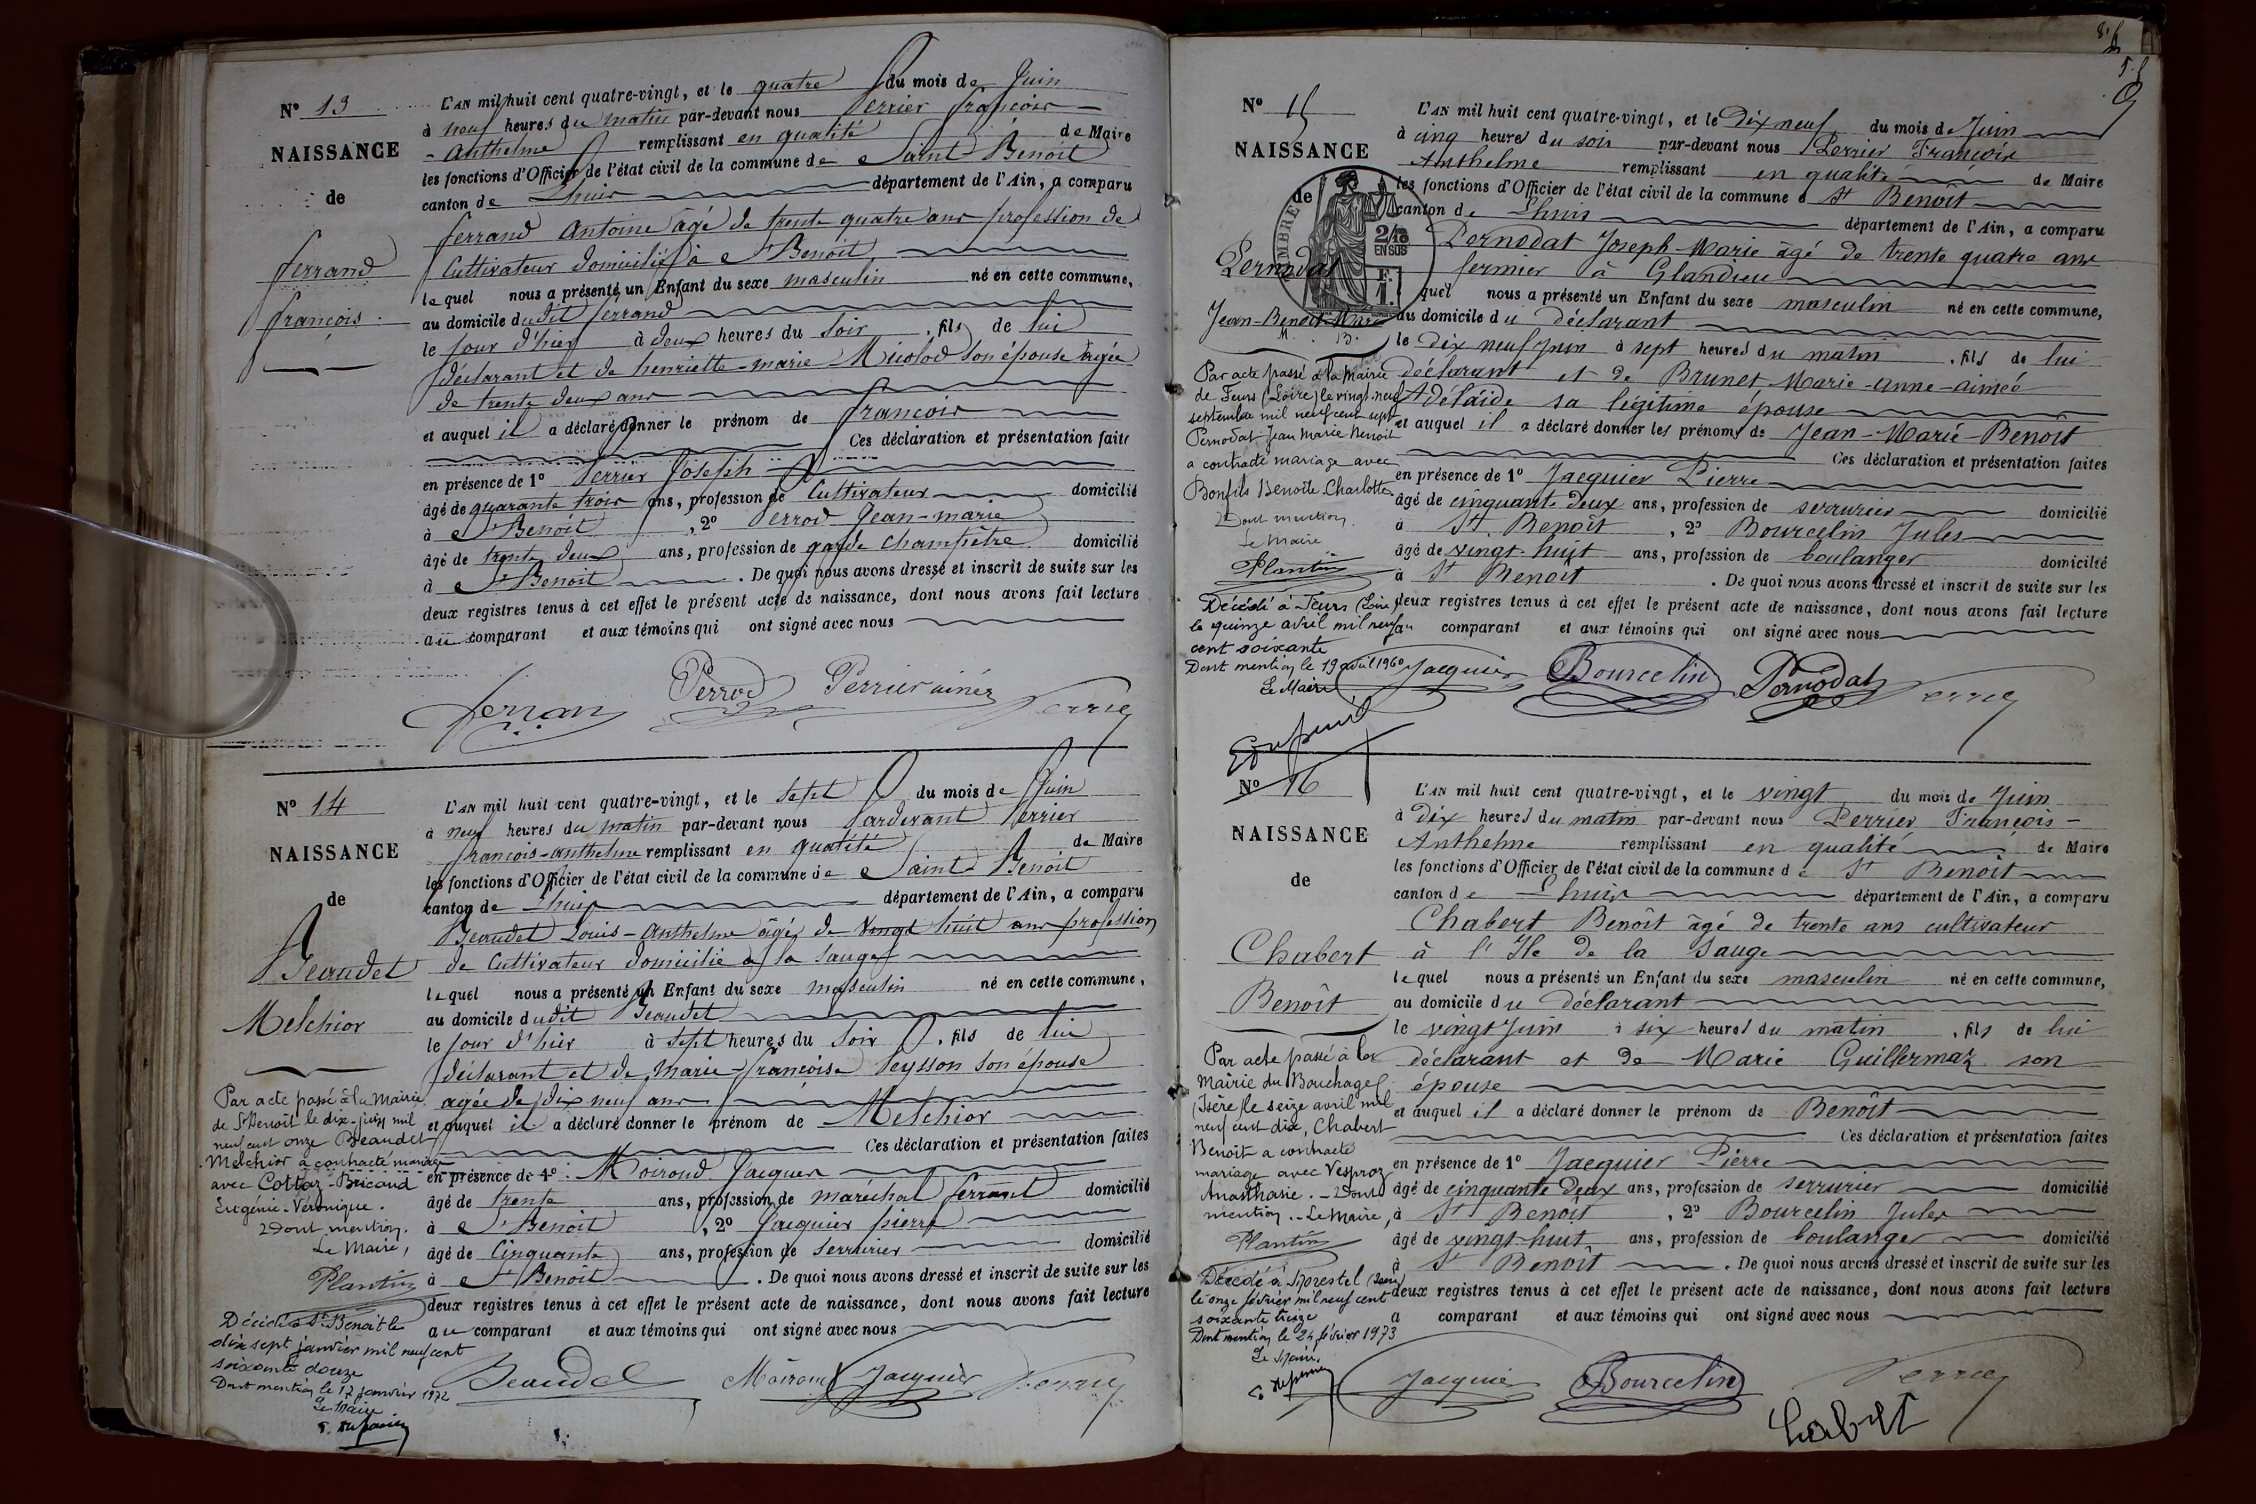 N° 13
NAISSANCE
de
ferrand
françois.
L'AN mil huit cent quatre-vingt, et le quatre du mois de Juin
à neuf heures du matin par-devant nous Perrier françois
- Anthelme remplissant en qualité de Maire
les fonctions d'Officier de l'état civil de la commune de Saint Benoit
canton de Lhuis département de l'Ain, a comparu
ferrand Antoine âgé de trente quatre ans profession de
Cultivateur domicilié à St Benoit
lequel nous a présenté un Enfant du sexe masculin né en cette commune,
au domicile dudit ferrand
le jour d'hier à deux heures du soir, fils de lui
déclarant et de henriette-marie Micolod son épouse âgée
de trente deux ans
et auquel il a déclaré donner le prénom de françois
Ces déclaration et présentation faites
en présence de 1° Perrier Joseph
âgé de quarante trois ans, profession de Cultivateur domicilié
à St Benoit, 2° Perrod Jean-marie
âgé de trente deux ans, profession de garde champêtre domicilié
à St Benoit. De quoi nous avons dressé et inscrit de suite sur les
deux registres tenus à cet effet le présent acte de naissance, dont nous avons fait lecture
au comparant et aux témoins qui ont signé avec nous
ferran Perrod Perrier ainéz Perrier
N° 14
NAISSANCE
de
Beaudet
Melchior
Par acte passé à la Mairie
de St Benoît le dix-juin mil
neuf cent onze Beaudet
Melchior a contracté mariage
avec Cottaz-Bricaud
Eugénie-Véronique.
Dont mention.
Le Maire,
Plantin
Décédé à St Benoît le
dix sept janvier mil neuf cent
soixante douze
Dont mention le 17 janvier 1972
Le Maire
L'AN mil huit cent quatre-vingt, et le sept du mois de Juin
à neuf heures du matin par-devant nous Pardevant Perrier
françois-anthelme remplissant en qualité de Maire
les fonctions d'Officier de l'état civil de la commune de Saint Benoit
canton de Lhuis département de l'Ain, a comparu
Beaudet Louis-Anthelme âgé de vingt huit ans profession
de Cultivateur domicilié à la Sauge
lequel nous a présenté un Enfant du sexe masculin né en cette commune,
au domicile dudit Beaudet
le jour d'hier à sept heures du soir, fils de lui
déclarant et de Marie-françoise Peysson son épouse
agée de dix neuf ans
et auquel il a déclaré donner le prénom de Melchior
Ces déclaration et présentation faites
en présence de 1°: Moiroud Jacques
âgé de trente ans, profession de maréchal ferrant domicilié
à St Benoit, 2° Jacquier pierre
âgé de Cinquante ans, profession de serrurier domicilié
à St Benoit. De quoi nous avons dressé et inscrit de suite sur les
deux registres tenus à cet effet le présent acte de naissance, dont nous avons fait lecture
au comparant et aux témoins qui ont signé avec nous
Beaudet Moiroud Jacquier Perrier
N° 15
NAISSANCE
de
Pernodat
Jean-Benoit-Marie
M. B.
TIMBRE
2/10 EN SUS
Par acte passé à la Mairie
de Feurs (Loire) le vingt-neuf
septembre mil neuf cent sept
Pernodat Jean Marie Benoit
a contracté mariage avec
Bonfils Benoîte Charlotte
Dont mention
Le Maire
Plantin
Décédé à Feurs (Loire)
le quinze avril mil neuf
cent soixante
Dont mention le 19 avril 1960
Le Maire
L'AN mil huit cent quatre-vingt, et le Dix neuf du mois de Juin
à cinq heures du soir par-devant nous Perrier François
Anthelme remplissant en qualité de Maire
les fonctions d'Officier de l'état civil de la commune d St Benoît
canton de Lhuis département de l'Ain, a comparu
Pernodat Joseph-Marie âgé de trente quatre ans
fermier à Glandieu
quel nous a présenté un Enfant du sexe masculin né en cette commune,
au domicile du déclarant
le dix neuf juin à sept heures du matin, fils de lui
déclarant et de Brunet Marie-anne-aimée
Adélaïde sa légitime épouse
et auquel il a déclaré donner les prénoms de Jean-Marie-Benoît
Ces déclaration et présentation faites
en présence de 1° Jacquier Pierre
âgé de cinquante deux ans, profession de serrurier domicilié
à St Benoît, 2° Bourcelin Jules
âgé de vingt-huit ans, profession de boulanger domicilié
à St Benoît. De quoi nous avons dressé et inscrit de suite sur les
deux registres tenus à cet effet le présent acte de naissance, dont nous avons fait lecture
au comparant et aux témoins qui ont signé avec nous
Jacquier Bourcelin Pernodat Perrier
N° 16
NAISSANCE
de
Chabert
Benoît
Par acte passé à la
Mairie du Bouchage
(Isère) le seize avril mil
neuf cent dix, Chabert
Benoît a contracté
mariage avec Vesproz
Anasthasie. - Dont
mention. - Le Maire,
Plantin
Décédé à Morestel (Isère)
le onze février mil neuf cent
soixante treize
Dont mention le 24 février 1973
Le Maire
L'AN mil huit cent quatre-vingt, et le vingt du mois de Juin
à Dix heures du matin par-devant nous Perrier François-
Anthelme remplissant en qualité de Maire
les fonctions d'Officier de l'état civil de la commune de St Benoît
canton de Lhuis département de l'Ain, a comparu
Chabert Benoît âgé de trente ans cultivateur
à l'Ile de la Sauge
lequel nous a présenté un Enfant du sexe masculin né en cette commune,
au domicile du déclarant
le vingt Juin à six heures du matin, fils de lui
déclarant et de Marie Guillermaz son
épouse
et auquel il a déclaré donner le prénom de Benoît
Ces déclaration et présentation faites
en présence de 1° Jacquier Pierre
âgé de cinquante deux ans, profession de serrurier domicilié
à St Benoît, 2° Bourcelin Jules
âgé de vingt-huit ans, profession de boulanger domicilié
à St Benoît. De quoi nous avons dressé et inscrit de suite sur les
deux registres tenus à cet effet le présent acte de naissance, dont nous avons fait lecture
a comparant et aux témoins qui ont signé avec nous
Jacquier Bourcelin Perrier